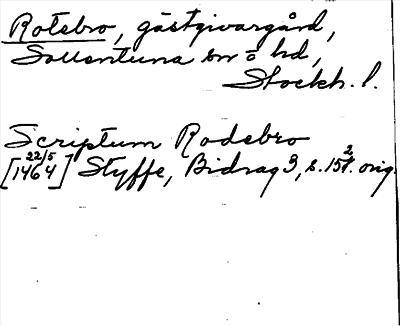 Rotebro, gästgivargård,
Sollentuna sn o hd,
Stockh. l.
Scriptum Rodebro
[22/5 1464] Styffe, Bidrag 3, s. 152. orig.